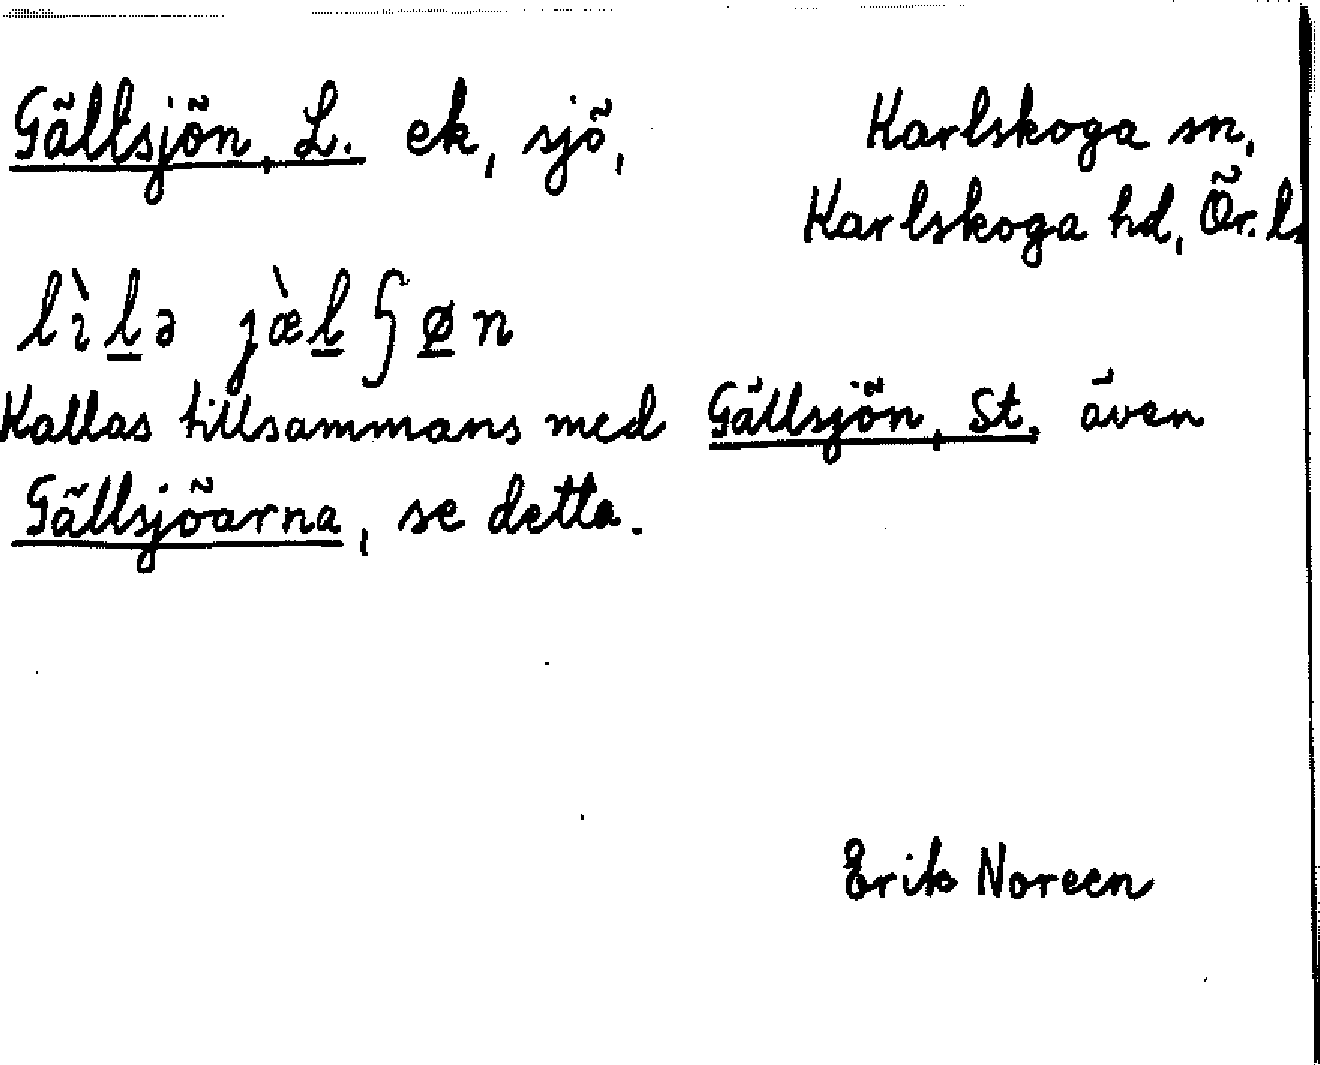 Gällsjön, L. ek, sjö, Karlskoga sn,
Karlskoga hd, Ör. l
lìlə jæ̀lʃøn
Kallas tillsammans med Gällsjön, St. även
Gällsjöarna, se detta.
Erik Noreen